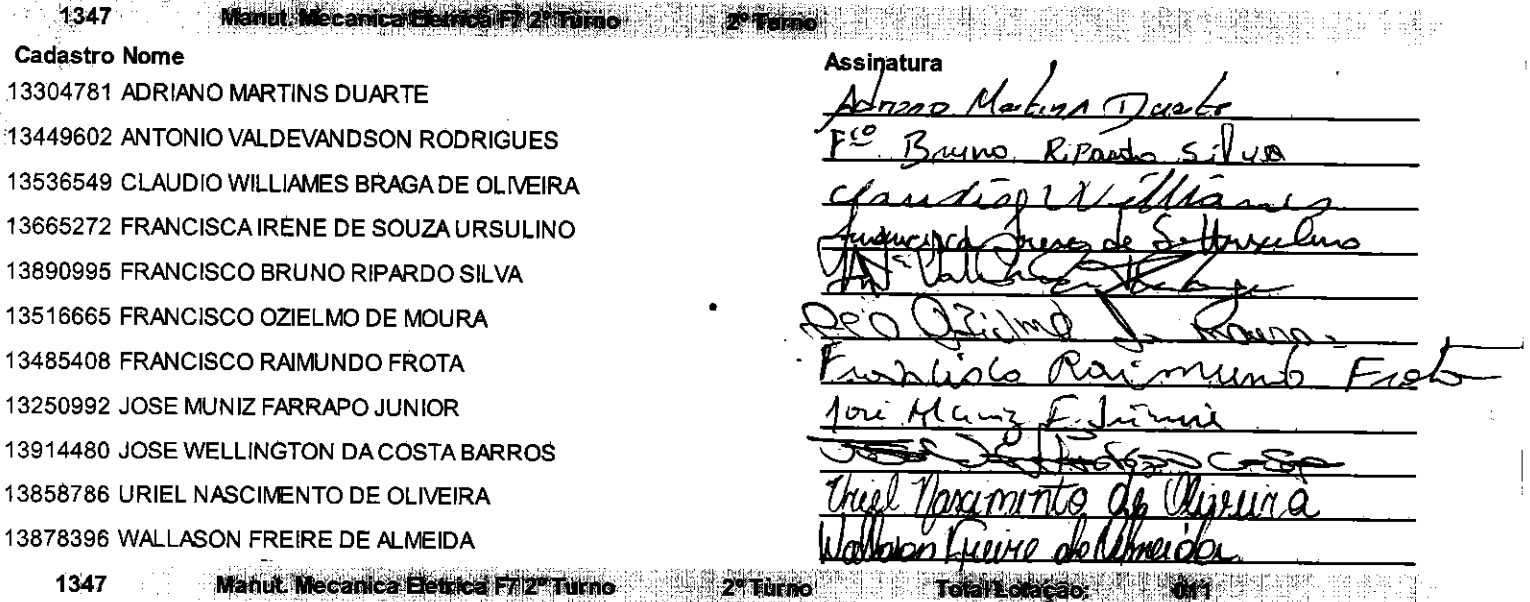 1347 Manut. Mecanica Eletrica F7 2º Turno 2º Turno
Cadastro Nome Assinatura
13304781 ADRIANO MARTINS DUARTE Adriano Martins Duarte
13449602 ANTONIO VALDEVANDSON RODRIGUES Fco. Bruno Ripardo Silva
13536549 CLAUDIO WILLIAMES BRAGA DE OLIVEIRA Claudio Williames
13665272 FRANCISCA IRENE DE SOUZA URSULINO Francisca Irene de S. Ursulino
13890995 FRANCISCO BRUNO RIPARDO SILVA
13516665 FRANCISCO OZIELMO DE MOURA Ozielmo de Moura
13485408 FRANCISCO RAIMUNDO FROTA Francisco Raimundo Frota
13250992 JOSE MUNIZ FARRAPO JUNIOR José Muniz F. Júnior
13914480 JOSE WELLINGTON DA COSTA BARROS
13858786 URIEL NASCIMENTO DE OLIVEIRA Uriel Nascimento de Oliveira
13878396 WALLASON FREIRE DE ALMEIDA Wallason Freire de Almeida
1347 Manut. Mecanica Eletrica F7 2º Turno 2º Turno Total Lotação: 011